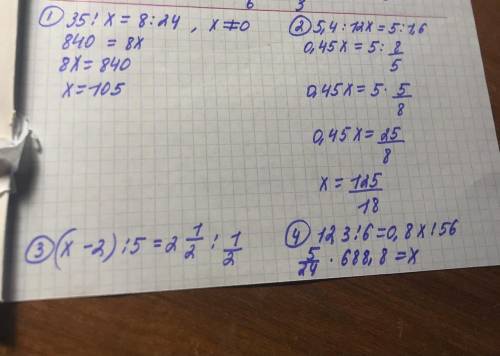 6 3
① 35 : x = 8 : 24 , x ≠ 0
840 = 8x
8x = 840
x = 105
② 5,4 : 12x = 5 : 1,6
0,45x = 5 : 8/5
0,45x = 5 · 5/8
0,45x = 25/8
x = 125/18
③ (x - 2) : 5 = 2 1/2 : 1/2
④ 123 : 6 = 0,8x : 56
5/24 · 688,8 = x